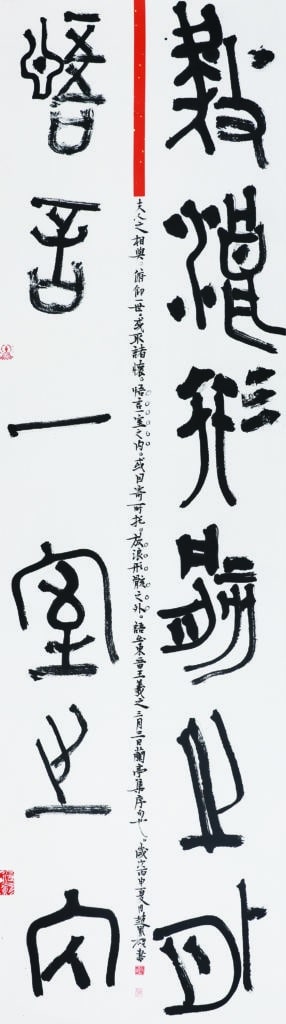 放浪形骸之外
夫人之相與。俯仰一世。或取諸懷。悟言一室之内。或因寄所托。放浪形骸之外。語出東晉王羲之三月三日蘭亭集序句也。歲次丙申夏月書
悟言一室之内